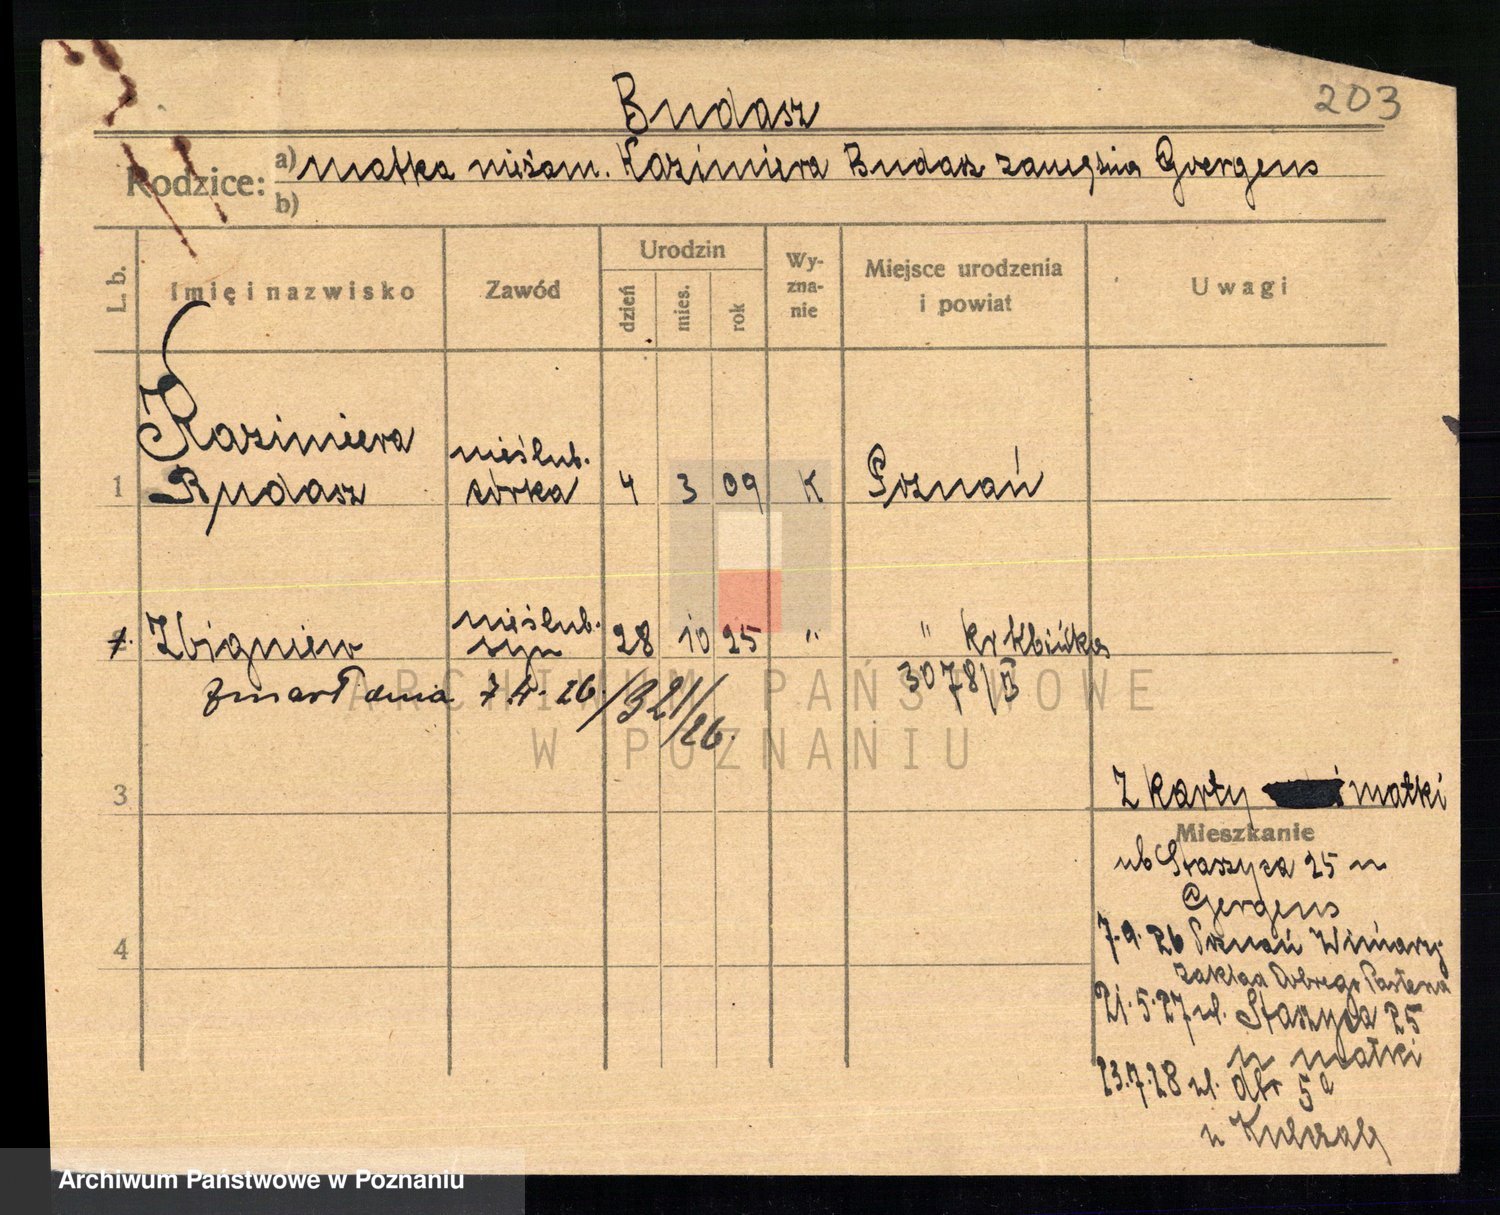 203
Budasz
Rodzice:
a) matka nieśam. Kazimiera Budasz zamężna Goergens
b)
L. b.
Imię i nazwisko
Zawód
Urodzin
dzień
mies.
rok
Wy-
zna-
nie
Miejsce urodzenia
i powiat
Uwagi
Kazimiera
nieślub.
1 Budasz córka 4 3 09 K Poznań
nieślub.
2. Zbigniew syn 28 10 25 " "
3078/II
zmarł dnia 7.4.26./321/26.
3
Z karty matki
Mieszkanie
ul Staszyca 25 u
Gergens
4
7.9.26 Poznań Winiary
zakład Dobrego Pasterza
21.5.27 ul. Staszyca 25
u matki
23.7.28 ul. 5a
u
ARCHIWUM PAŃSTWOWE
W POZNANIU
Archiwum Państwowe w Poznaniu